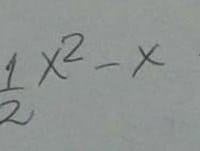 ½x² - x